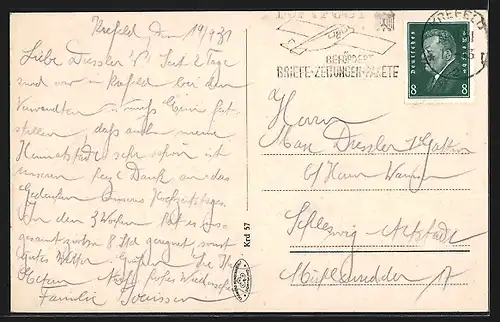 Krefeld den 19/9 31
Liebe Dressler's! Seit 2 Tage
sind wir in Krefeld bei den
Verwandten u. muss Emmi fest-
stellen, dass auch meine
Heimatstadt sehr schön ist
unseren herzl. Dank an das
Gedenken unseres Hochzeitstages.
In den 3 Wochen hat es ins-
gesamt 8 Std geregnet sonst
gutes Wetter. Grüssen
frohes Wiedersehen
Familie
LUFTPOST
BEFÖRDERT
BRIEFE-ZEITUNGEN-PAKETE
KREFELD
Deutsches Reich
8 8
Krd 57
Herrn
Max Dressler u. Gattin
b/ Herrn
Schleswig-Altstadt
Mühlenredder 17